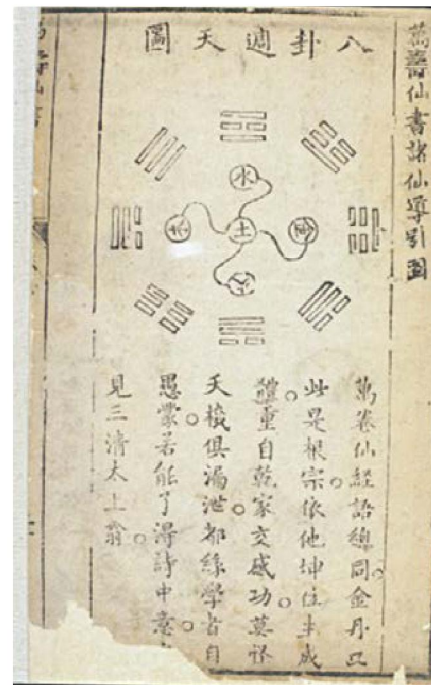 萬壽仙書諸仙導引圖
八卦週天圖
水
金
土
木
火
萬卷仙經語總同。金丹只
此是根宗。依他坤位生成
體。重自乾家交感功。莫怪
天機俱漏泄。都緣學者自
愚蒙。若能了得詩中意。
見三清太上翁。